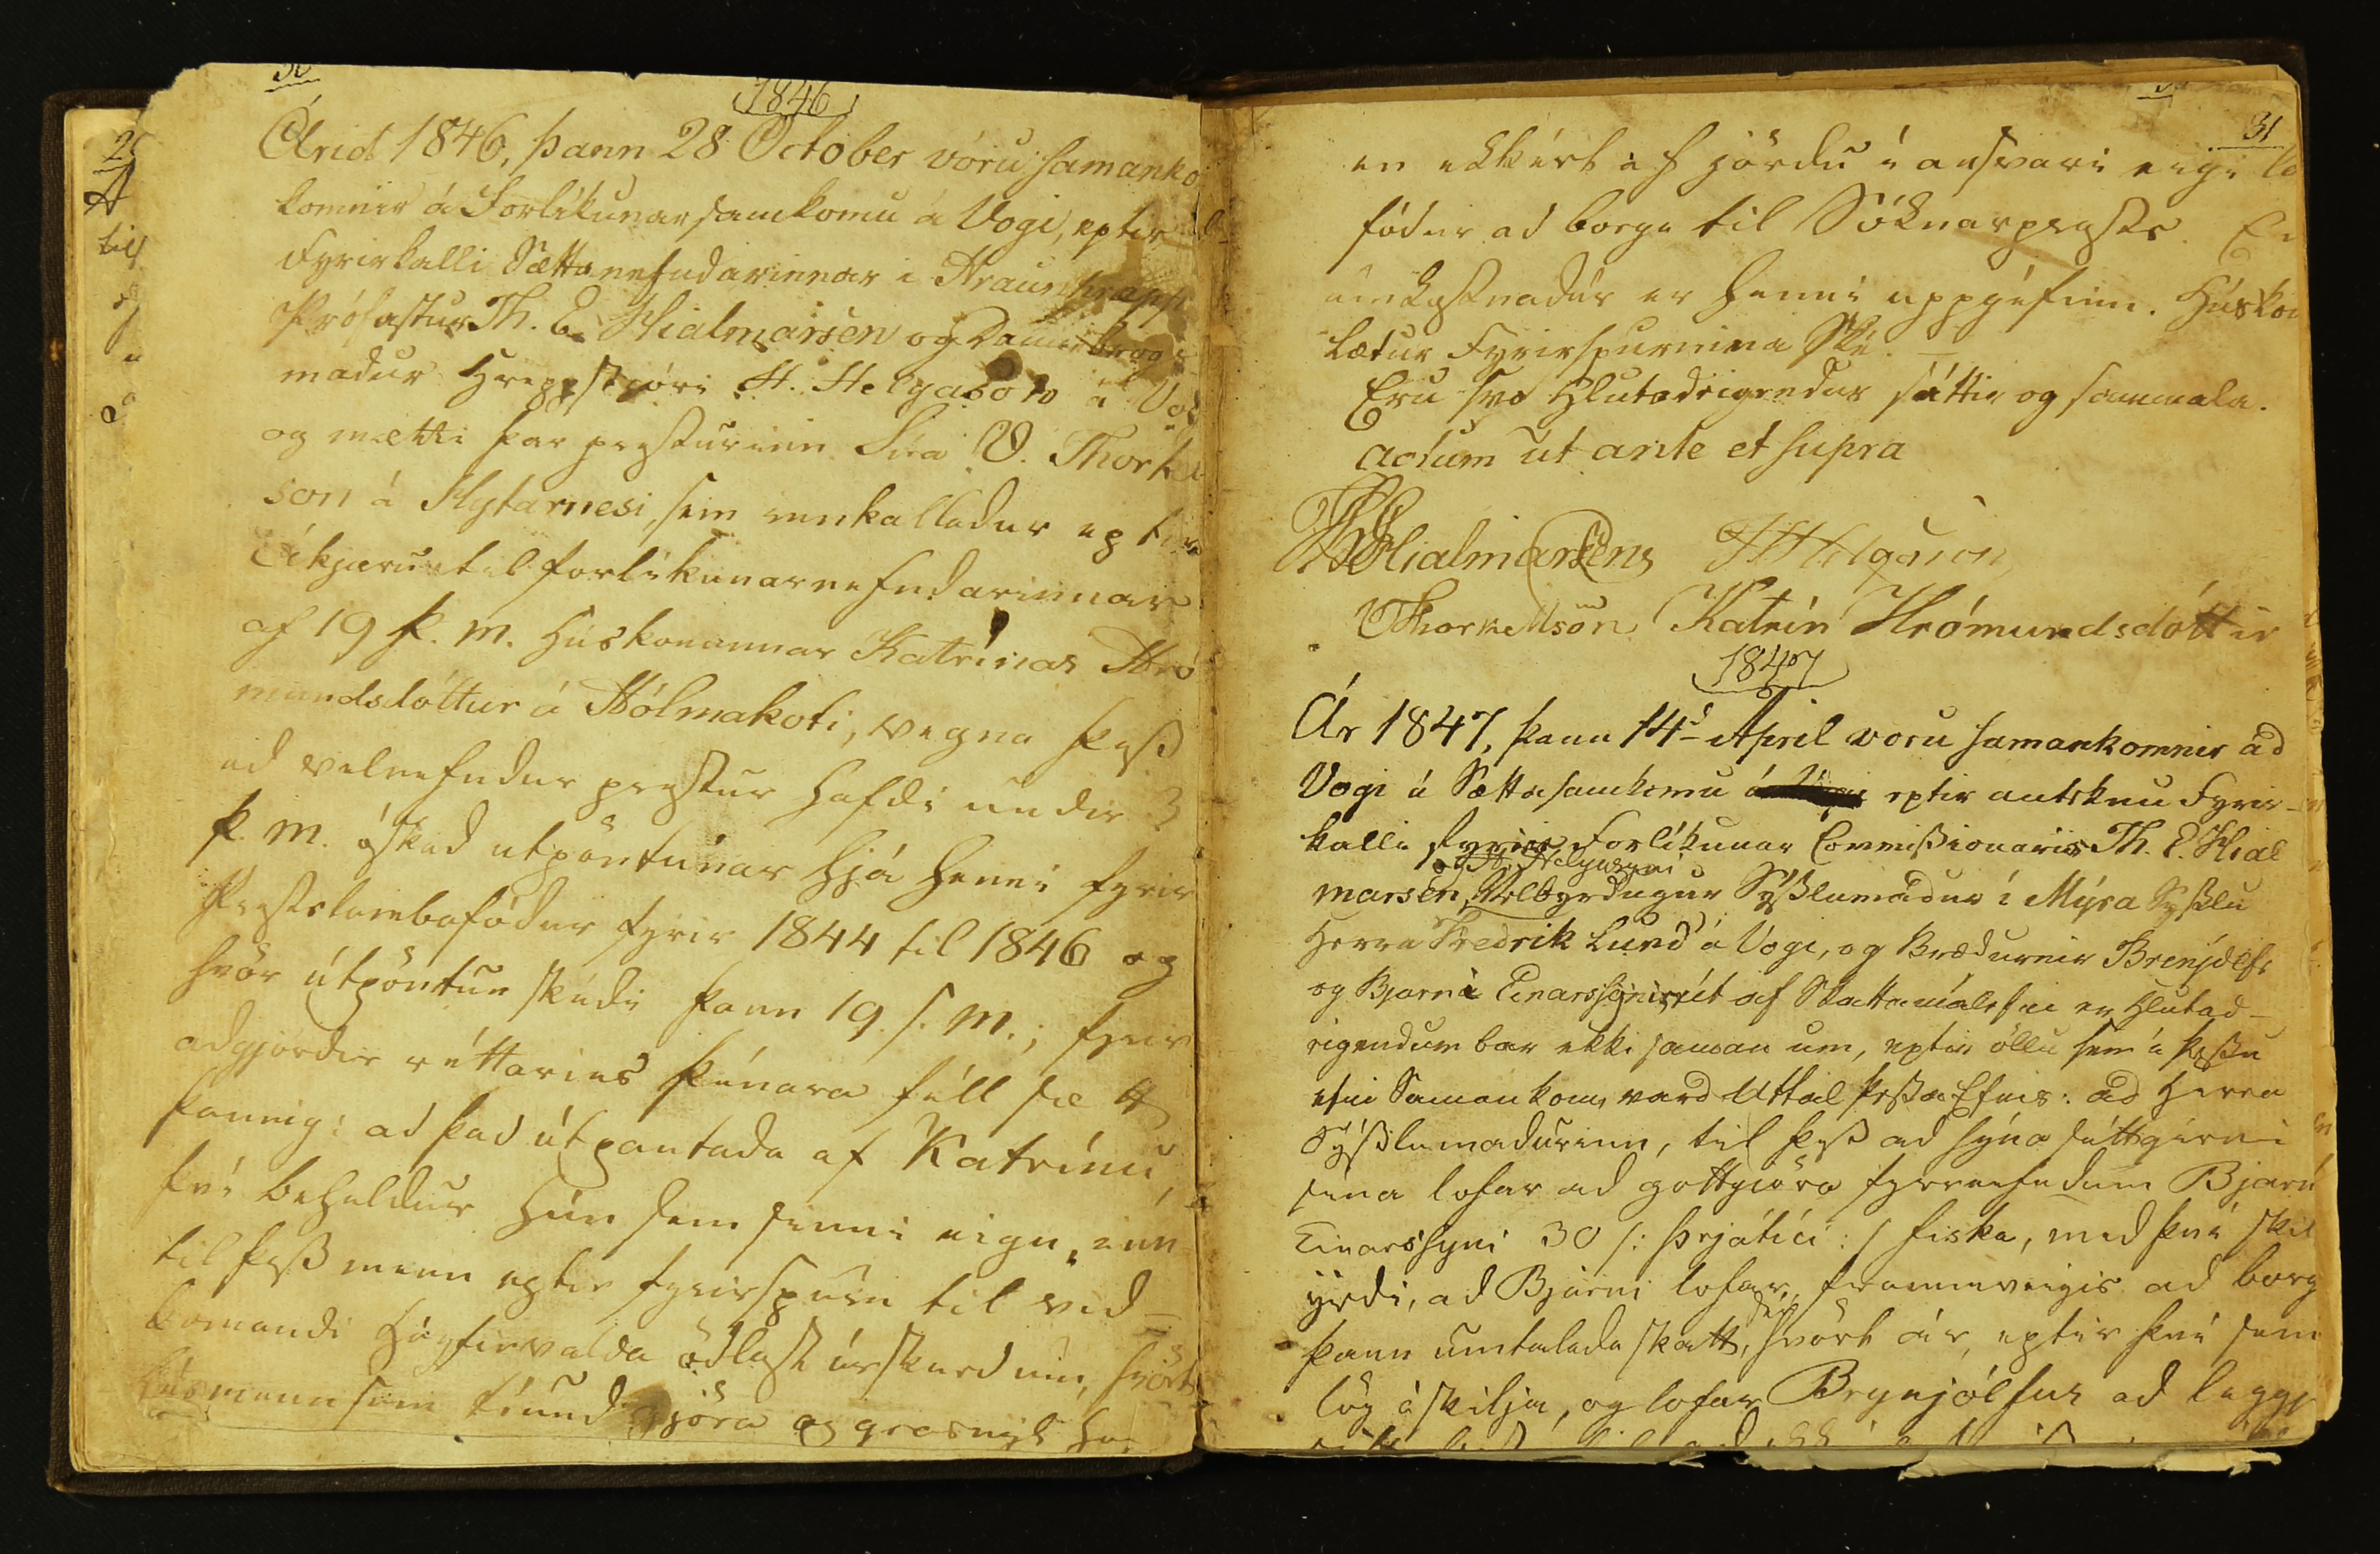 30
1846
Árid 1846, þann 28 October vóru samanko
komnir á Forlíkunar samkomu á Vogi, eptir
Fyrirkalli Sættanefndarinnar i Hraunhrepp
Prófastur Th. E. Hialmarsen og Dannebrogs
madur Hreppstjóri H. Helgason á Vog
og mætti þar presturinn Síra V. Thorkel
son á Hytarnesi, sem innkalladur eptir
Ákjæru til forlíkunarnefndarinnar
af 19 þ. m. Húskonunnar Katrínar Hró
mundsdóttur á Hólmakoti, vegna þess
ad velnefndur prestur hafdi undir 3
þ. m. óskad útpöntunar hjá henni fyrir
Prestslambsfódur fyrir 1844 til 1846 og
hvör útpöntun skédi þann 19 s. m.; fyrir
adgjördir réttarins þénara féll sætt
þannig: ad það útpantada af Katrínu,
því beheldur hún sem sinni eign, inn
til þess menn eptir fyrirspurn til vid-
komandi Háyfirvalda ödlast úrskurd um, hvört
húsmenn sem tíund gjöra og grasnyt ha
31
en ekkért af jördu i ansvari eigi la
fódur ad borga til Sóknarprests. En
umkostnadur er henni uppgéfinn. Húskon
lætur Fyrirspurnina Ské.
Eru svo hlutadeigendur sáttir og sammála.
actum ut ante et supra
ThEHialmarsens HHelgason
VThorkellsson Katrín Hrómundsdóttir
1847
Ár 1847, þann 14d April voru samankomnir ad
Vogi á Sættasamkomu eptir munteknu Fyrir-
kalli fyrir Forlíkunar Commissionarir Th. E. Hial
og H. Helgasyni
marsen, Velbyrdugur Sýsslumadur í Mýra Sýsslu
Herra Fredrik Lund á Vogi, og Brædurnir Brenjólfr
og Bjarni Einarssynir, út af Skattamálefni er hlutad-
eigendum bar ekki saman um, eptir öllu sem á þessu
efni Saman kom, vard Uttal þessa Efnis: ad Herra
Sýsslumadurinn, til þess ad sýna sáttgirni
sína lofar ad gottgiöra fyrrnefndum Bjarn
Einarssyni 30 /: þrjátíu :/ fiska, med því skil
yrdi, ad Bjarni lofar, framveigis ad borg
þann umtalada skatt, hvört ár, eptir því sem
lög áskilja, og lofar Brynjólfur ad leggja